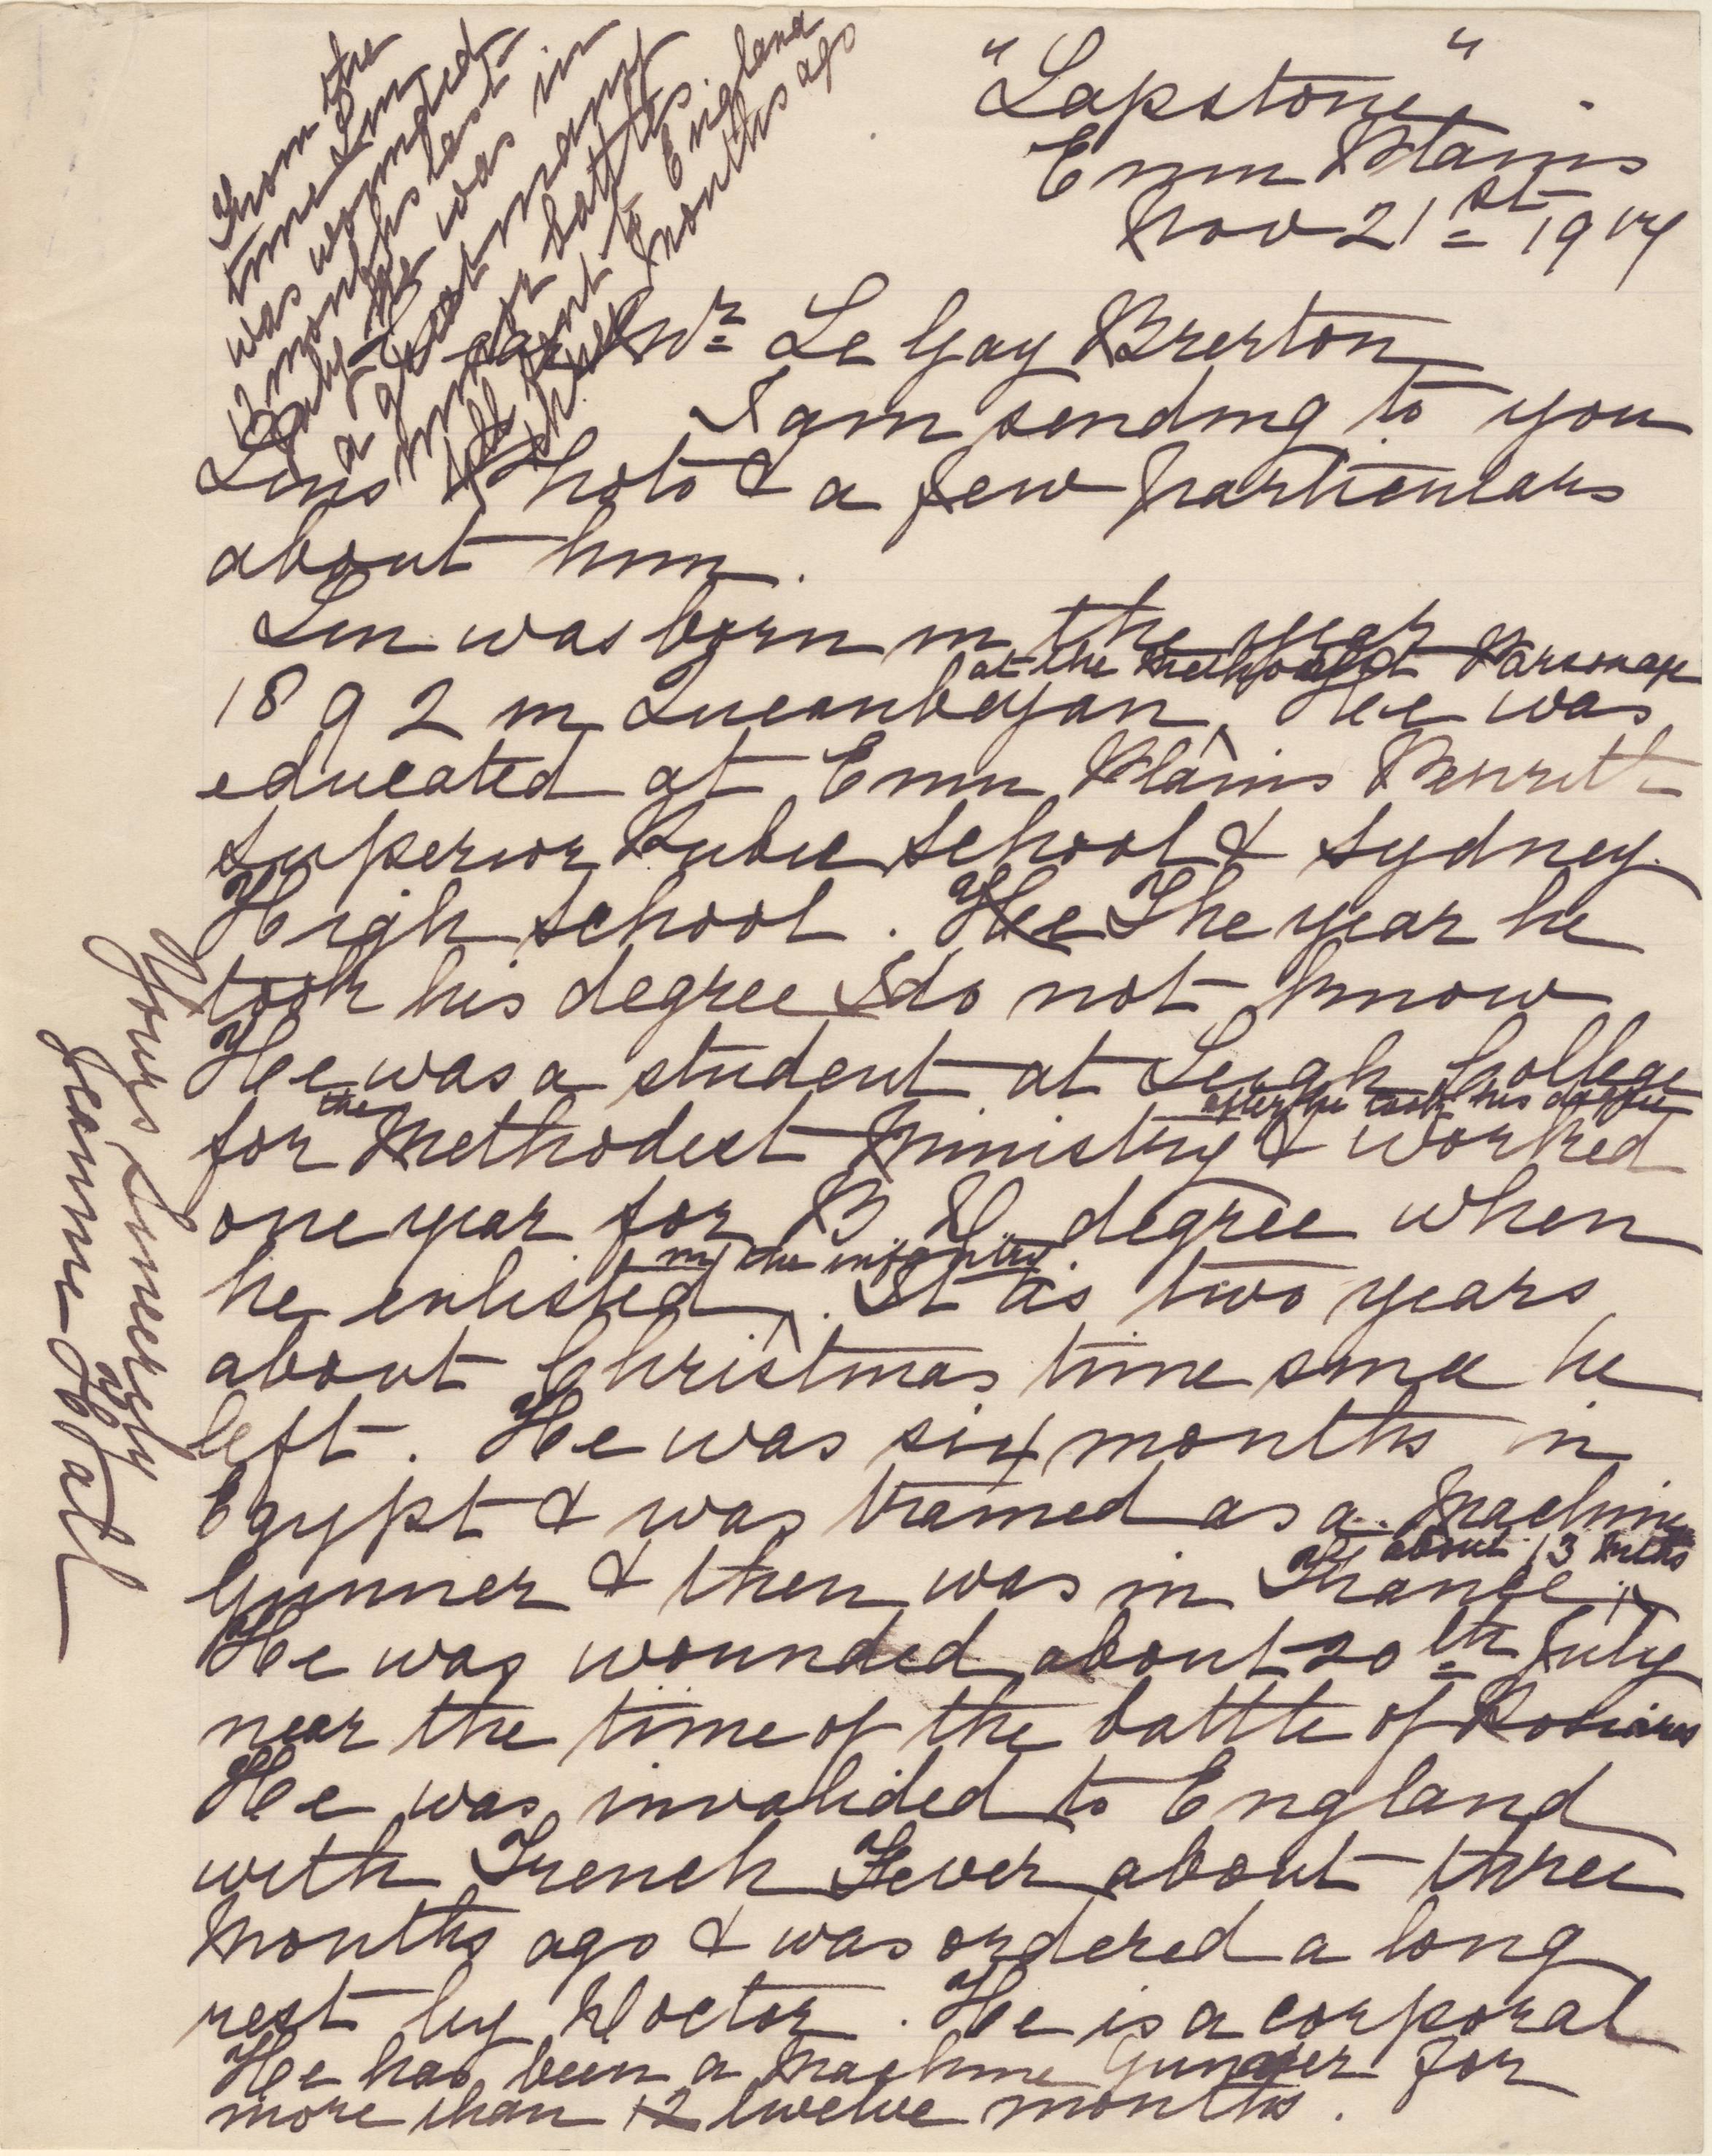 "Lapstone"
Emu Plains
Nov 21st 1917
Dear Mr Le Gay Brerton
I am sending to you
Lins Photo & a few particulars
about him.
Lin was born in the year
at the Methodist Parsonage
1892 in Queanbeyan, He was
educated at Emu Plains Penrith
Superior Public School & Sydney
High School. He The year he
took his degree I do not know
He was a student at Leigh College
for the Methodist Ministry after he took his degree & worked
one year for B D degree when
he enlisted in the infantry. It is two years
about Christmas time since he
left. He was six months in
Egypt & was trained as a Machine
Gunner & then was in France about 13 mths
He was wounded about 20th July
near the time of the battle of Pozieres
He was invalided to England
with Trench Fever about three
months ago & was ordered a long
rest by Doctor. He is a corporal
He has been a Machine Gunner for
more than 12 twelve months.
From the
time Lin
was wounded
12 months last
July he was in
a great many
major battles.
till sent to England
three months ago
Yours Sincerely
Jeannie Hall